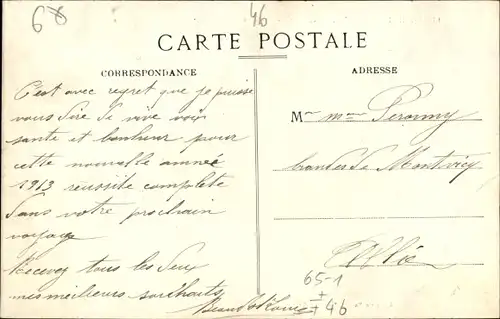 68
46
CARTE POSTALE
CORRESPONDANCE
ADRESSE
C'est avec regret que je puisse
vous dire de vive voix
sante et bonheur pour
cette nouvelle année
1913 réussite complète
dans votre prochain
voyage
Recevez tous les deux
mes meilleurs souhaits
M
Montvicq
65-1
+
46